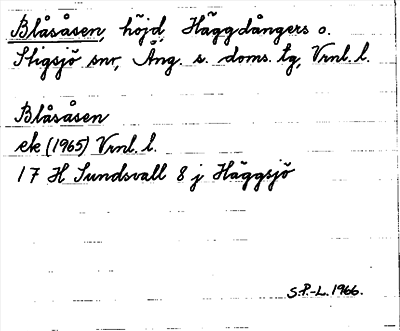 Blåsåsen, höjd, Häggdångers o.
Stigsjö snr, Ång. s. doms. tg, Vrnl. l.
Blåsåsen
ek (1965) Vrnl. l.
17 H Sundsvall 8 j Häggsjö
S.P.-L. 1966.